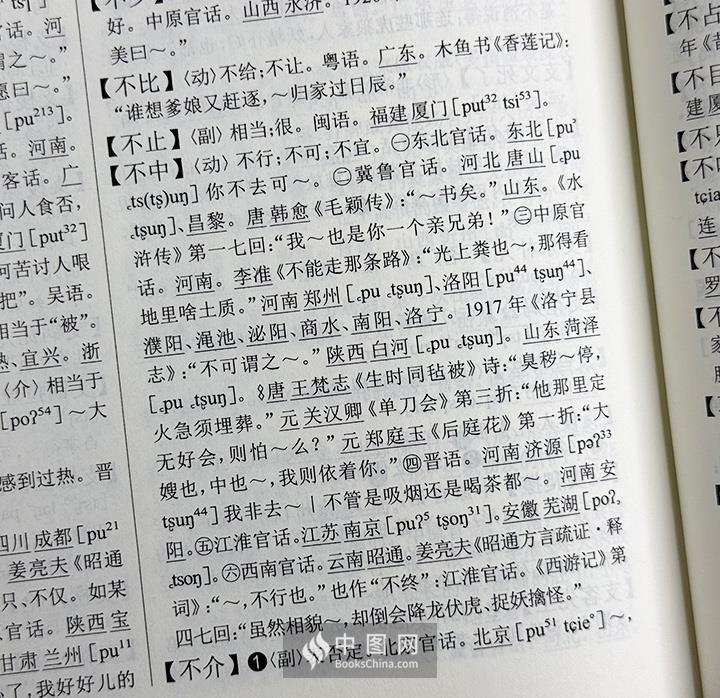 好。中原官话。山西永济。
美曰～。”
【不比】〈动〉不给；不让。粤语。广东。木鱼书《香莲记》：
“谁想爹娘又赶逐，～归家过日辰。”
【不止】〈副〉相当；很。闽语。福建厦门[put³² tsi⁵³]。
【不中】〈动〉不行；不可；不宜。㊀东北官话。东北[puʾ
꜀ts(tʂ)uŋ]你不去可～。㊁冀鲁官话。河北唐山[꜀pu
꜀tʂuŋ]、昌黎。唐韩愈《毛颖传》：“～书矣。”山东。《水
浒传》第一七回：“我～也是你一个亲兄弟！”㊂中原官
话。河南。李准《不能走那条路》：“光上粪也～，那得看
地里啥土质。”河南郑州[꜀pu ꜀tʂuŋ]、洛阳[pu⁴⁴ tʂuŋ⁴⁴]、
濮阳、渑池、泌阳、商水、南阳、洛宁。1917年《洛宁县
志》：“不可谓之～。”陕西白河[꜀pu ꜀tʂuŋ]。山东菏泽
[꜀pu ꜀tʂuŋ]。唐王梵志《生时同毡被》诗：“臭秽～停，
火急须埋葬。”元关汉卿《单刀会》第三折：“他那里定
无好会，则怕～么？”元郑庭玉《后庭花》第一折：“大
嫂也，中也～，我则依着你。”㊃晋语。河南济源[pəʔ³³
tʂuŋ⁴⁴]我非去～｜不管是吸烟还是喝茶都～。河南安
阳。㊄江淮官话。江苏南京[puʔ⁵ tʂoŋ³¹]。安徽芜湖[poʔ꜇
꜀tsoŋ]。㊅西南官话。云南昭通。姜亮夫《昭通方言疏证·释
词》：“～，不行也。”也作“不终”：江淮官话。《西游记》第
四七回：“虽然相貌～，却倒会降龙伏虎、捉妖擒怪。”
【不介】❶〈副〉否定。北京官话。北京[pu⁵¹ tɕie°]～，
中图网
BooksChina.com
话。河
谓之～。”
愿曰～。”
[pu²¹³]。
话。河南。
客话。广
问人食否，
厦门[put³²]
何苦讨人哏
把”。吴语。
相当于“被”。
热、宜兴。浙
〈介〉相当于
[poʔ⁵⁴]～大
感到过热。晋
四川成都[pu²¹
姜亮夫《昭通
只、不仅。如某
官话。陕西宝
甘肃兰州[pu¹¹
了，我好好儿的
【不占
年《
【不目
建厦
【不
【不
tɕia
连
【不
罗
【不